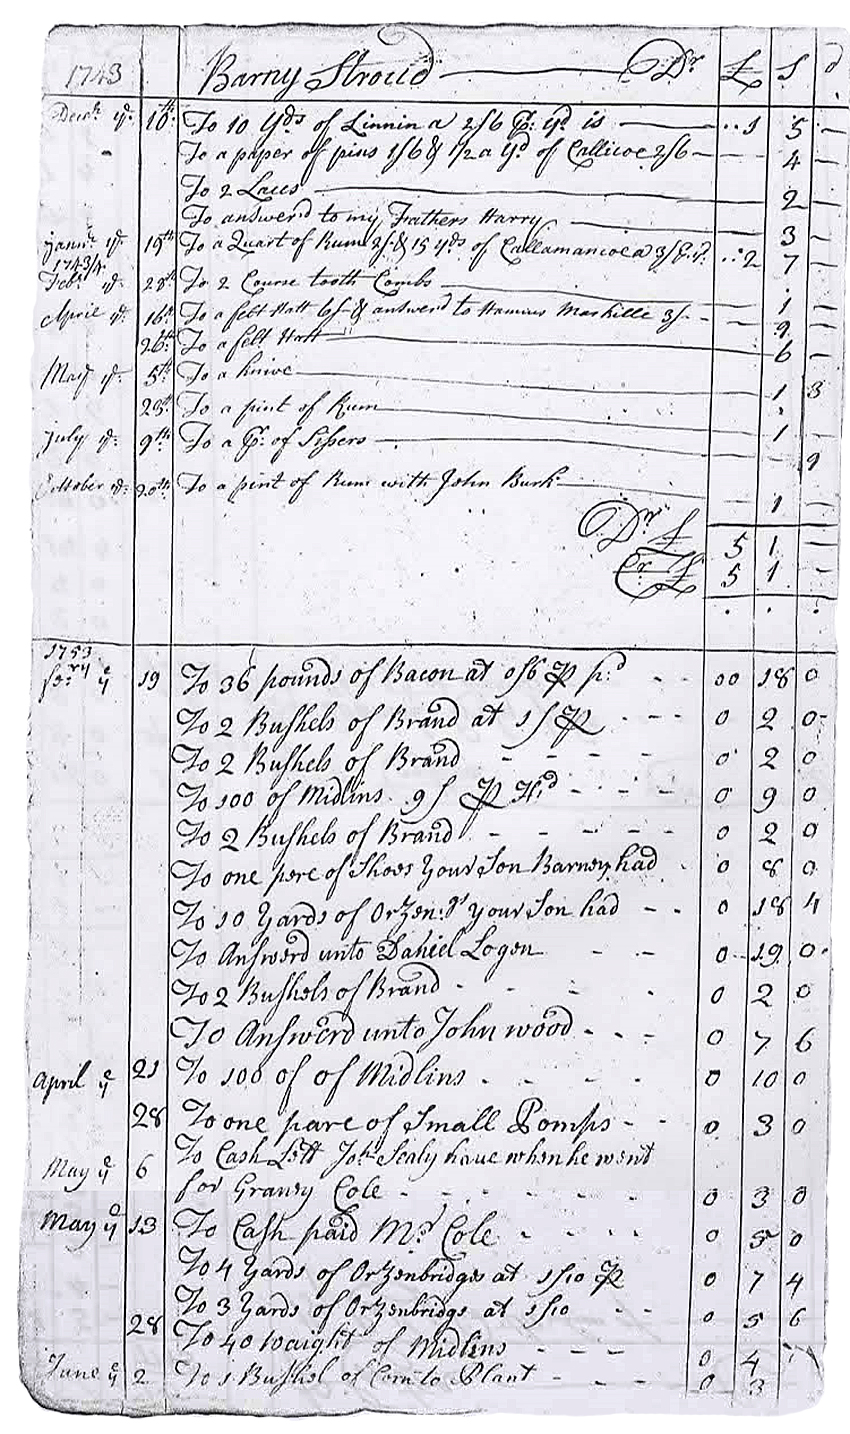 1743 Barny Stroud Dr £ S d
Decbr ye 10th To 10 Yds of Linnin a 2/6 Pr Yd is 1 5 —
To a paper of pins 1/6 & 1/2 a Yd of Callicoe 2/6 — 4 —
To 2 Laces — 2 —
To answerd to my Fathers Harry — 3 —
Janry ye 19th To a Quart of Rum 2/ & 15 yds of Callamancoe a 3/ Pr yd 2 7 —
1743/4
Febr ye 28th To 2 Course tooth Combs — 1 —
April ye 16th To a felt Hatt 6/ & answerd to Hamius Maskille 3/ — 9 —
26th To a felt Hatt — 6 —
May ye 5th To a knive 1 3
28th To a pint of Rum 1 —
July ye 9th To a Pr of Sissers — — 9
October ye 20th To a pint of Rum with John Burk — 1 —
Dr £ 5 1 —
Cr £ 5 1 —
1753
ye 19 To 36 pounds of Bacon at 0/6 P pd 00 18 0
To 2 Bushels of Brand at 1/ P 0 2 0
To 2 Bushels of Brand 0 2 0
To 100 of Midlins 9/ P Hd 0 9 0
To 2 Bushels of Brand 0 2 0
To one pere of Shoes Your Son Barney had 0 8 0
To 10 Yards of Orzen:gs your Son had 0 18 4
To Answerd unto Daniel Logen 0 19 0
To 2 Bushels of Brand 0 2 0
To Answerd unto John wood 0 7 6
April ye 21 To 100 of of Midlins 0 10 0
28 To one pare of Small Pomps 0 3 0
May ye 6 To Cash Lett Jon Sealy have when he went
for Graney Cole 0 3 0
May ye 13 To Cash paid Mr Cole 0 5 0
To 4 Yards of Orzenbridges at 1/10 P 0 7 4
To 3 Yards of Orzenbridgs at 1/10 0 5 6
28 To 40 waight of Midlins 0 4
June ye 2 To 1 Bushel of Corn to Plant 0 3